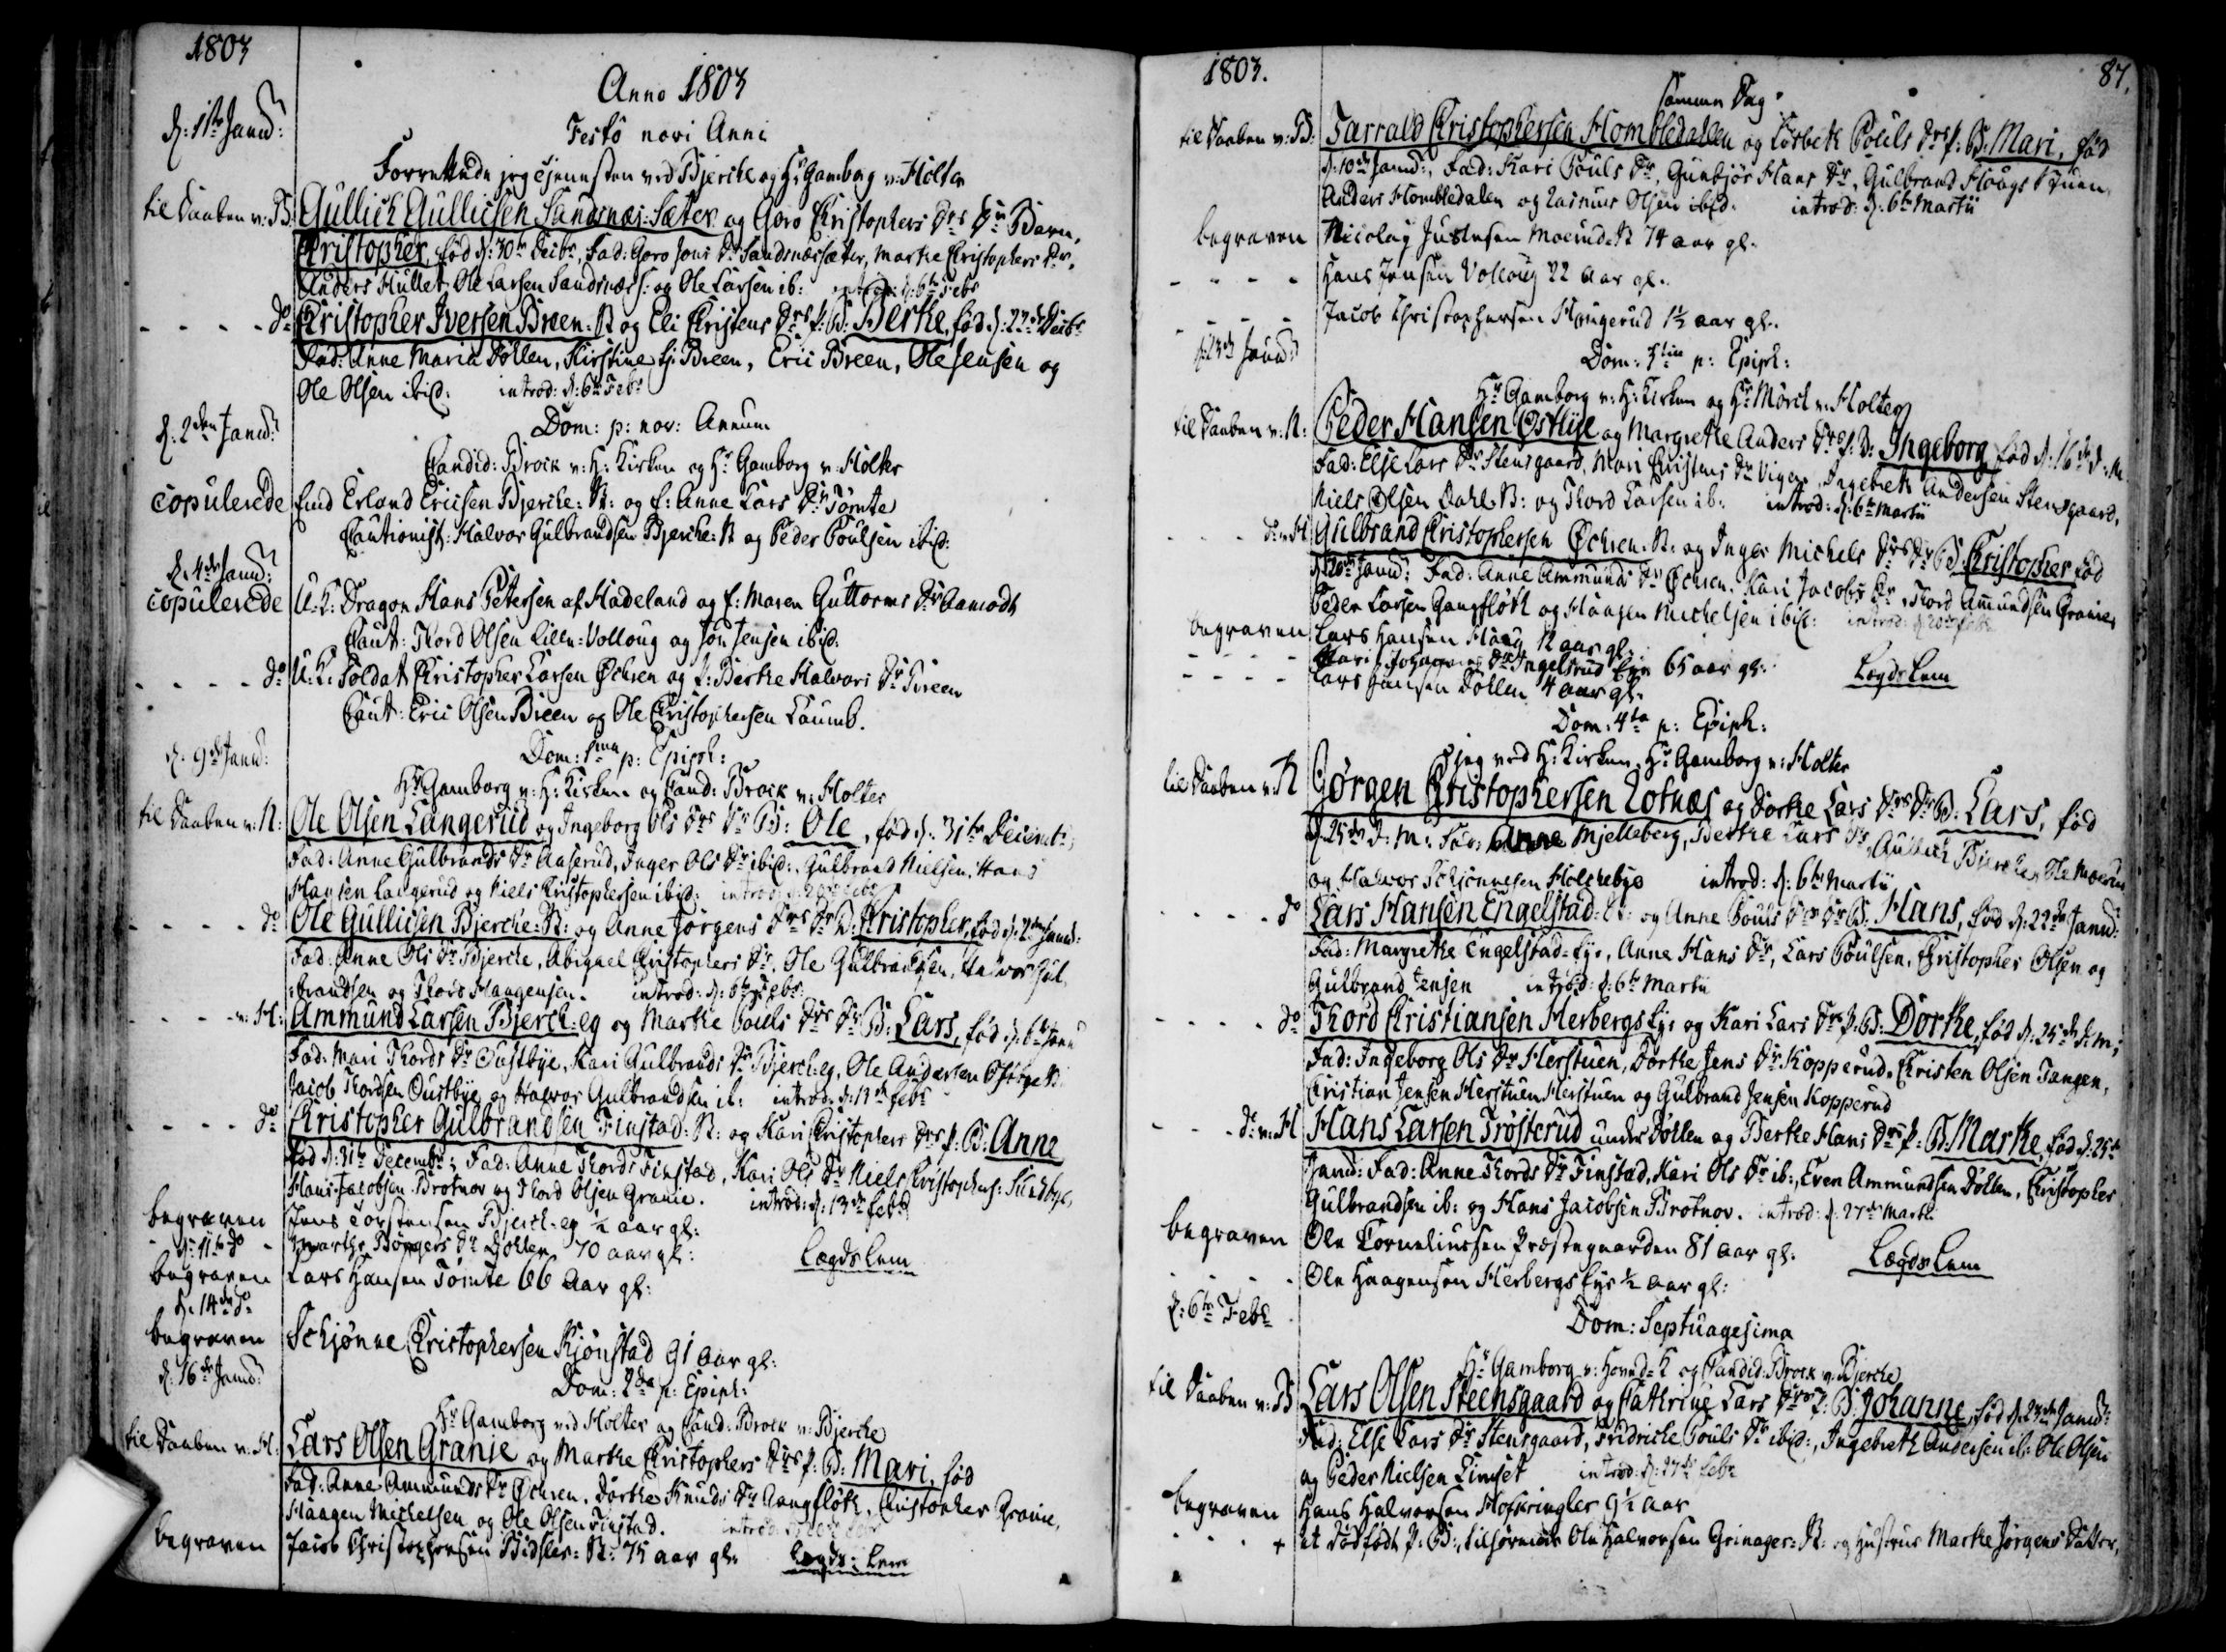 1803
Anno 1803
d: 1ste Janu:
Festo novi Anni
Forrettede jeg Tjenesten ved Bjercke og Hr Gamborg v: Holter
til Daaben v: B: Gullich Gullichsen Sandsnæs-Sæter og Goro Kristophers Drs Dr Barn,
Kristopher, fød d: 30te Decbr, Fad: Goro Jons Dr Sandsnæssæter, Marthe Kristophers Dr,
Anders Hullet, Ole Larsen Sandsnæss: og Ole Larsen ib: introd: d: 6te Febr
- - - - do Kristopher Iversen Breen: N og Eli Kristens Drs p: B: Berthe, fød d: 22de Decbr
Fad: Anne Maria Döllen, Kirstine Ej: Breen, Eric Breen, Ole Jensen og
Ole Olsen ibid: introd: d: 6te Febr
d: 2den Janu:
Dom: p: nov: Annum
Candid: Brock v: H: Kirken og Hr Gamborg v: Holter
copulerede Emd Erland Ericsen Bjercke: N: og f: Anne Lars Dr Tömte
Cautionist: Halvor Gulbrandsen Bjercke: N og Peder Poulsen ibid:
d: 4de Janu:
copulerede U: K: Dragon Hans Petersen af Hadeland og f: Maren Guttorms Dr Aamodt
Caut: Thord Olsen Lille-Volloug og Jon Jensen ibid:
- - - - do U: K: Soldat Kristopher Larsen Öchren og P: Berthe Halvors Dr Breen
Caut: Eric Olsen Breen og Ole Christophersen Laumb.
d: 9de Janu:
Dom: 1ma p: Epiph:
Hr Gamborg v: H: Kirken og Cand: Brock v: Holter
til Daaben v: N: Ole Olsen Langerud og Ingeborg Ols Drs Dr B: Ole, fød d: 31te Decembr,
Fad: Anne Gulbrands Dr Aaserud, Inger Ols Dr ibid:, Gulbrand Nielsen, Hans
Hansen Langerud og Niels Kristophersen ibid: introd: d: 20de Febr
- - - - do Ole Gullicsen Bjercke: N: og Anne Jörgens Drs Dr B: Kristopher, fød d: 2den Janu:
Fad: Anne Ols Dr Bjercke, Abigael Kristophers Dr, Ole Gulbrandsen, Halvor Gul-
brandsen og Thord Haagensen. introd: d: 6te Febr:
- - - - v: H: Ammund Larsen Bjerck-eg og Marthe Pouls Drs Dr B: Lars, fød d: 6te Janu
Fad: Mari Thords Dr Oustbye, Kari Gulbrands Dr Bjerck-eg, Ole Andersen
Jacob Thordsen Oustbye og Halvor Gulbrandsen ib: introd: d: 13de Febr
- - - - do Kristopher Gulbrandsen Finstad: N: og Kari Kristophers Drs p: B: Anne
fød d: 31te Decembr:, Fad: Anne Thords Finstad, Kari Ols Dr Niels Kristophers: Sundbye,
Hans Jacobsen Brotnov og Thord Olsen Granie. introd: d: 13de Febr
begraven Jens Torstensen Bjerck-eg ½ aar gl:
d: 11te do Marthe Dr Döhlen 70 aar gl: Lægds Lem
begraven Lars Hansen Tömte 66 aar gl:
d: 14de do
begraven Schjønne Kristophersen Kjönstad 91 aar gl:
d: 16de Janu:
Dom: 2da p: Epiph:
Hr Gamborg ved Holter og Cand: Brock v: Bjercke
til Daaben v: H: Lars Olsen Granie og Marthe Kristophers Drs p: B: Mari, fød
Fad: Anne Ammunds Dr Öchren, Dorthe Knuds Dr Gangflöth, Kristopher Granie,
Haagen Michelsen og Ole Olsen Finstad. introd: d: 20de Febr
begraven Jacob Christophersen Bidsler: N: 75 aar gl: Lægds-Lem
1803.
87.
samme Dag
til Daaben v: B: Tarrald Kristophersen Hombledallen og Lisbeth Pouls Drs p: B: Mari, fød
d: 10de Janu:, Fad: Kari Pouls Dr, Gunbjör Hans Dr, Gulbrand Hougs Stuen,
Anders Hombledalen og Rasmus Olsen ibid. introd: d: 6te Martii
begraven Nicolay Justesen Moerud: N 74 aar gl.
- - - - Hans Jensen Volloug 22 aar gl.
- - - - Jacob Christophersen Hongerud 1½ aar gl.
d: 23de Janu:
Dom: 3tia p: Epiph:
Hr Gamborg v: H: Kirken og Hr Mörch v: Holter
til Daaben v: N: Peder Hansen Østlije og Margrethe Anders Drs p: B: Ingeborg, fød d: 16de d: M
Fad: Else Lars Dr Stensgaard, Mari Kristens Dr Vigen, Ingebreth Andersen Stensgaard,
Niels Olsen Dahl: N: og Thord Larsen ib: introd: d: 6te Martii
- - - - do v: H Gulbrand Kristophersen Öchren: N: og Inger Michels Drs Dr B: Kristopher fød
d: 20de Janu: Fad: Anne Ammunds Dr Öchren, Kari Jacobs Dr, Thord Ammundsen Granie,
Peder Larsen Gangflöth og Haagen Michelsen ibid: introd: d: 20de Febr
begraven Lars Hansen Haug 12 aar gl:
- - - - Kari Johannes Dr Ingelsrud Eye 65 aar gl: Lægds Lem
- - - - Lars Hansen Döllen 4 aar gl.
Dom: 4ta p: Epiph:
jeg ved H: Kirken, Hr Gamborg v: Holter
til Daaben v: N Jörgen Kristophersen Lotnæs og Dorthe Lars Drs Dr B: Lars, fød
d: 25de d: M: Fad: Anne Mjelleberg, Berthe Lars Dr, Gullich Bjercke, Ole Moerud
og Halvor Schjönnesen Holchebye introd: d: 6te Martii
- - - - do Lars Hansen Engelstad: N: og Anne Pouls Drs Dr B: Hans, fød d: 22de Janu:
Fad: Margrethe Engelstad-Eye, Anne Hans Dr, Lars Poulsen, Christopher Olsen og
Gulbrand Jensen introd: d: 6te Martii
- - - - do Thord Kristiansen Herbergs Eye og Kari Lars Drs p: B: Dorthe, fød d: 25de d: m:
Fad: Ingeborg Ols Dr Herstuen, Dorthe Jens Dr Kopperud, Christen Olsen Tangen,
Christian Jensen Herstuen Herstuen og Gulbrand Jensen Kopperud
- - - - do v: H Hans Larsen Tröjterud under Döllen og Berthe Hans Drs p: B: Marthe, fød d: 25de
Janu: Fad: Anne Thords Dr Finstad, Kari Ols Dr ib:, Even Ammundsen Döllen, Christopher
Gulbrandsen ib: og Hans Jacobsen Brotnov. introd: d: 27de Marti
begraven Ole Corneliussen Præstegaarden 81 aar gl: Lægds Lem
- - - - Ole Haagensen Herbergs Eye ½ aar gl:
d: 6te Febr
Dom: Septuagesima
Hr Gamborg v: Hoved-K og Candid: Brock v: Bjercke
til Daaben v: B Lars Olsen Steensgaard og Cathrine Lars Drs p: B: Johanne, fød d: 27de Janu:
Fad: Else Lars Dr Stensgaard, Fridricke Pouls Dr ibid:, Ingebreth Andersen ib: Ole Olsen
og Peder Nielsen Limset introd: d: 27de Febr
begraven Hans Halvorsen 9½ aar
- - + et dødfødt P: B:, tilhørende Ole Halvorsen Grinager: N: og Hustrue Marthe Jørgens Datter,